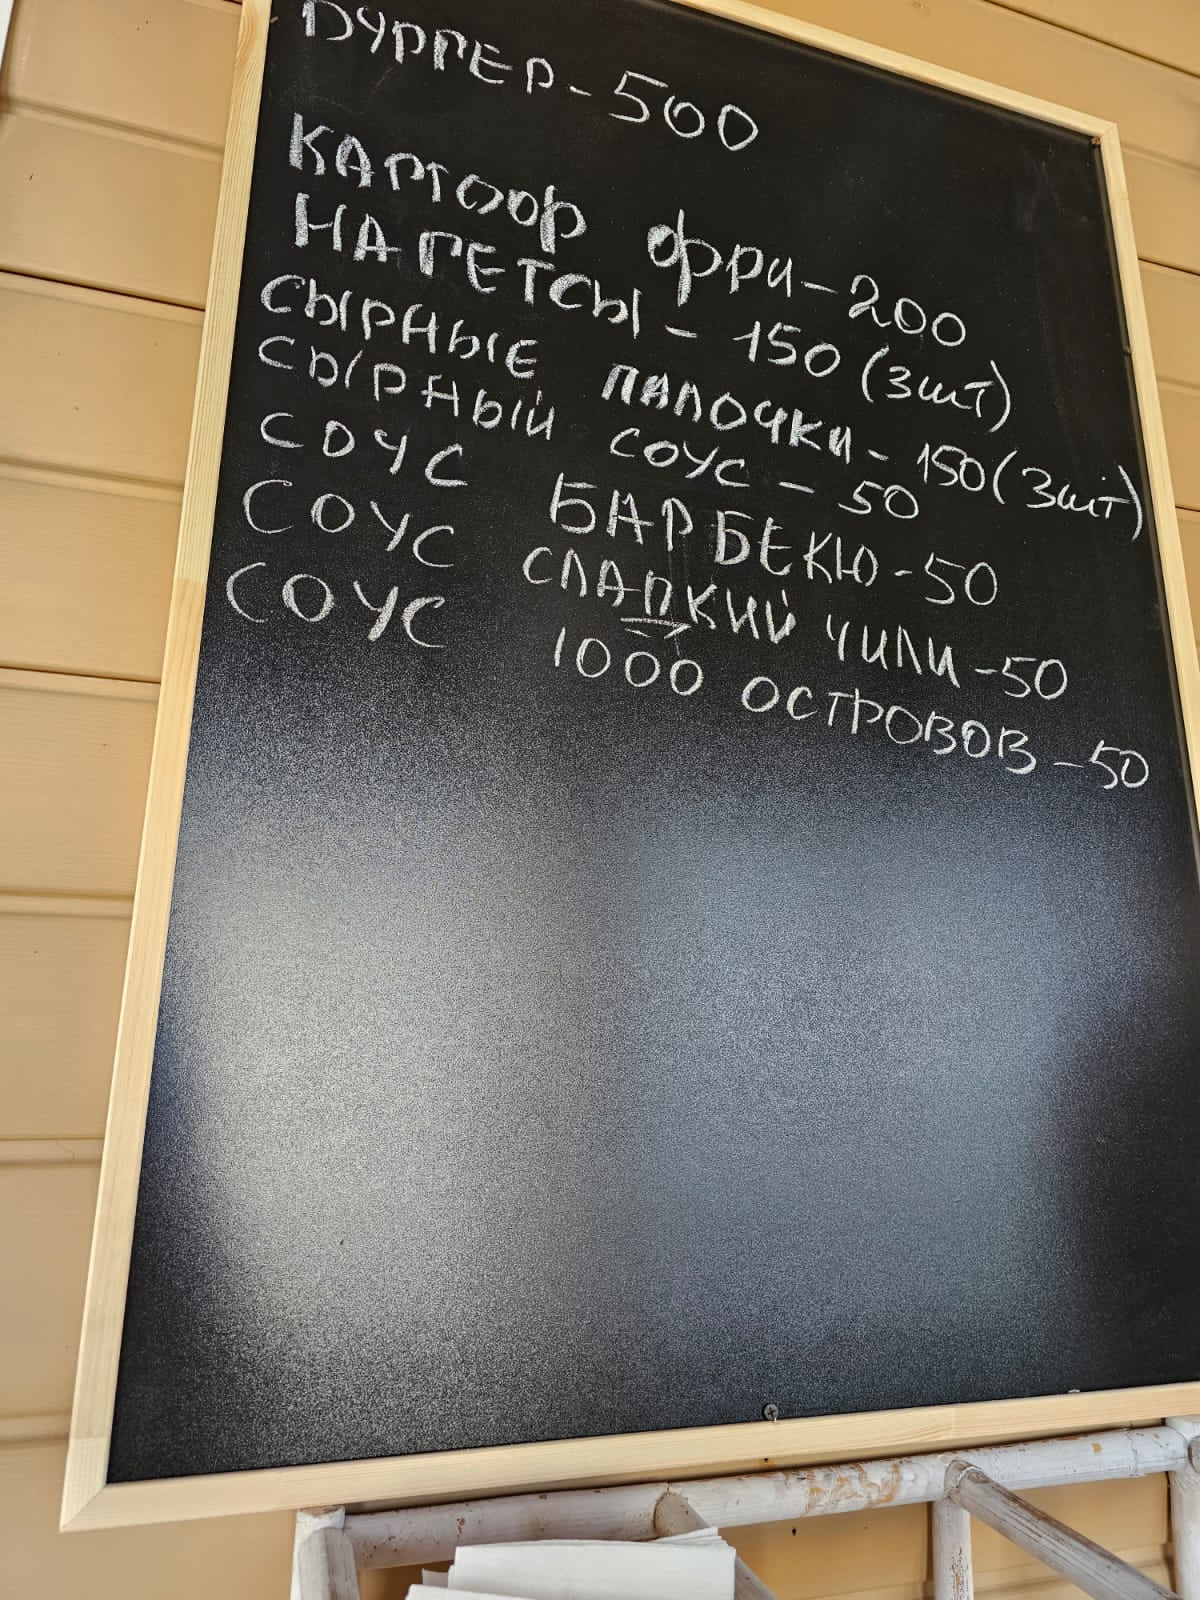 БУРГЕР - 500
КАРТОФ фри - 200
НАГЕТСЫ - 150 (3шт)
СЫРНЫЕ ПАЛОЧКИ - 150 (3шт)
СЫРНЫЙ СОУС - 50
СОУС БАРБЕКЮ - 50
СОУС СЛАДКИЙ ЧИЛИ - 50
СОУС 1000 ОСТРОВОВ - 50